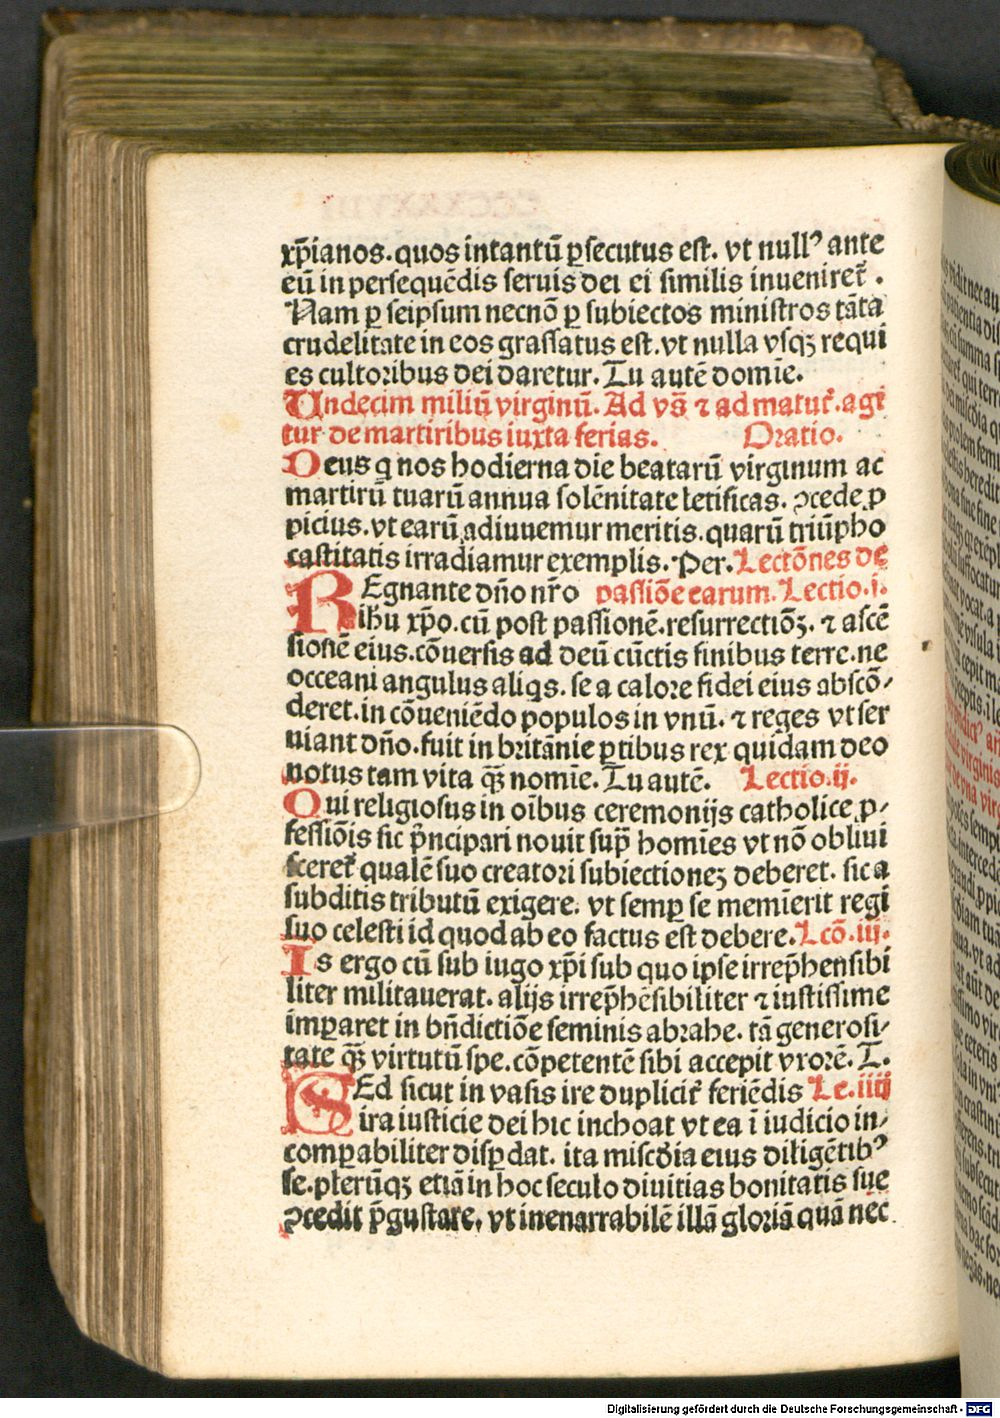 xp̄ianos. quos intantū ꝑsecutus est. vt nullꝰ ante
eū in persequēdis seruis dei ei similis inueniret̄.
Nam ꝑ seipsum necnō ꝑ subiectos ministros tāta
crudelitate in eos grassatus est. vt nulla vsqꝫ requi
es cultoribus dei daretur. Tu autē domīe.
Undecim miliū virginū. Ad vs̄ ⁊ ad matur̄. agi
tur de martiribus iuxta ferias. Oratio.
Deus q̄ nos hodierna die beatarū virginum ac
martirū tuarū annua solēnitate letificas. ꝯcede ꝓ
picius. vt earū adiuuemur meritis. quarū triūpho
castitatis irradiamur exemplis. Per. Lectōnes de
REgnante dn̄o nr̄o passiōe earum. Lectio. i.
ihu xp̄o. cū post passionē. resurrectiōꝫ. ⁊ ascē
sionē eius. cōuersis ad deū cūctis finibus terre. ne
occeani angulus aliqs. se a calore fidei eius abscō-
deret. in cōueniēdo populos in vnū. ⁊ reges vt ser
uiant dn̄o. fuit in britānie ꝑtibus rex quidam deo
notus tam vita qꝫ̄ nomīe. Tu autē. Lectio. ij.
Qui religiosus in oībus ceremonijs catholice ꝓ-
fessiōis sic p̄ncipari nouit sup̄ homīes vt nō obliui
sceret̄ qualē suo creatori subiectioneꝫ deberet. sic a
subditis tributū exigere. vt semꝑ se memīerit regi
suo celesti id quod ab eo factus est debere. Lcō. iij.
Is ergo cū sub iugo xp̄i sub quo ipse irrep̄hensibi
liter militauerat. alijs irrep̄hēsibiliter ⁊ iustissime
imꝑaret in bn̄dictiōe seminis abrahe. tā generosi-
tate qꝫ̄ virtutū spe. cōpetentē sibi accepit vxorē. T.
SEd sicut in vasis ire duplicit̄ feriēdis Le. iiij
ira iusticie dei hic inchoat vt ea ī iudicio in-
comꝑabiliter disꝑdat. ita misc̄dia eius diligētibꝰ
se. plerūqꝫ etiā in hoc seculo diuitias bonitatis sue
ꝯcedit p̄gustare. vt inenarrabilē illā gloriā quā nec
Digitalisierung gefördert durch die Deutsche Forschungsgemeinschaft - DFG